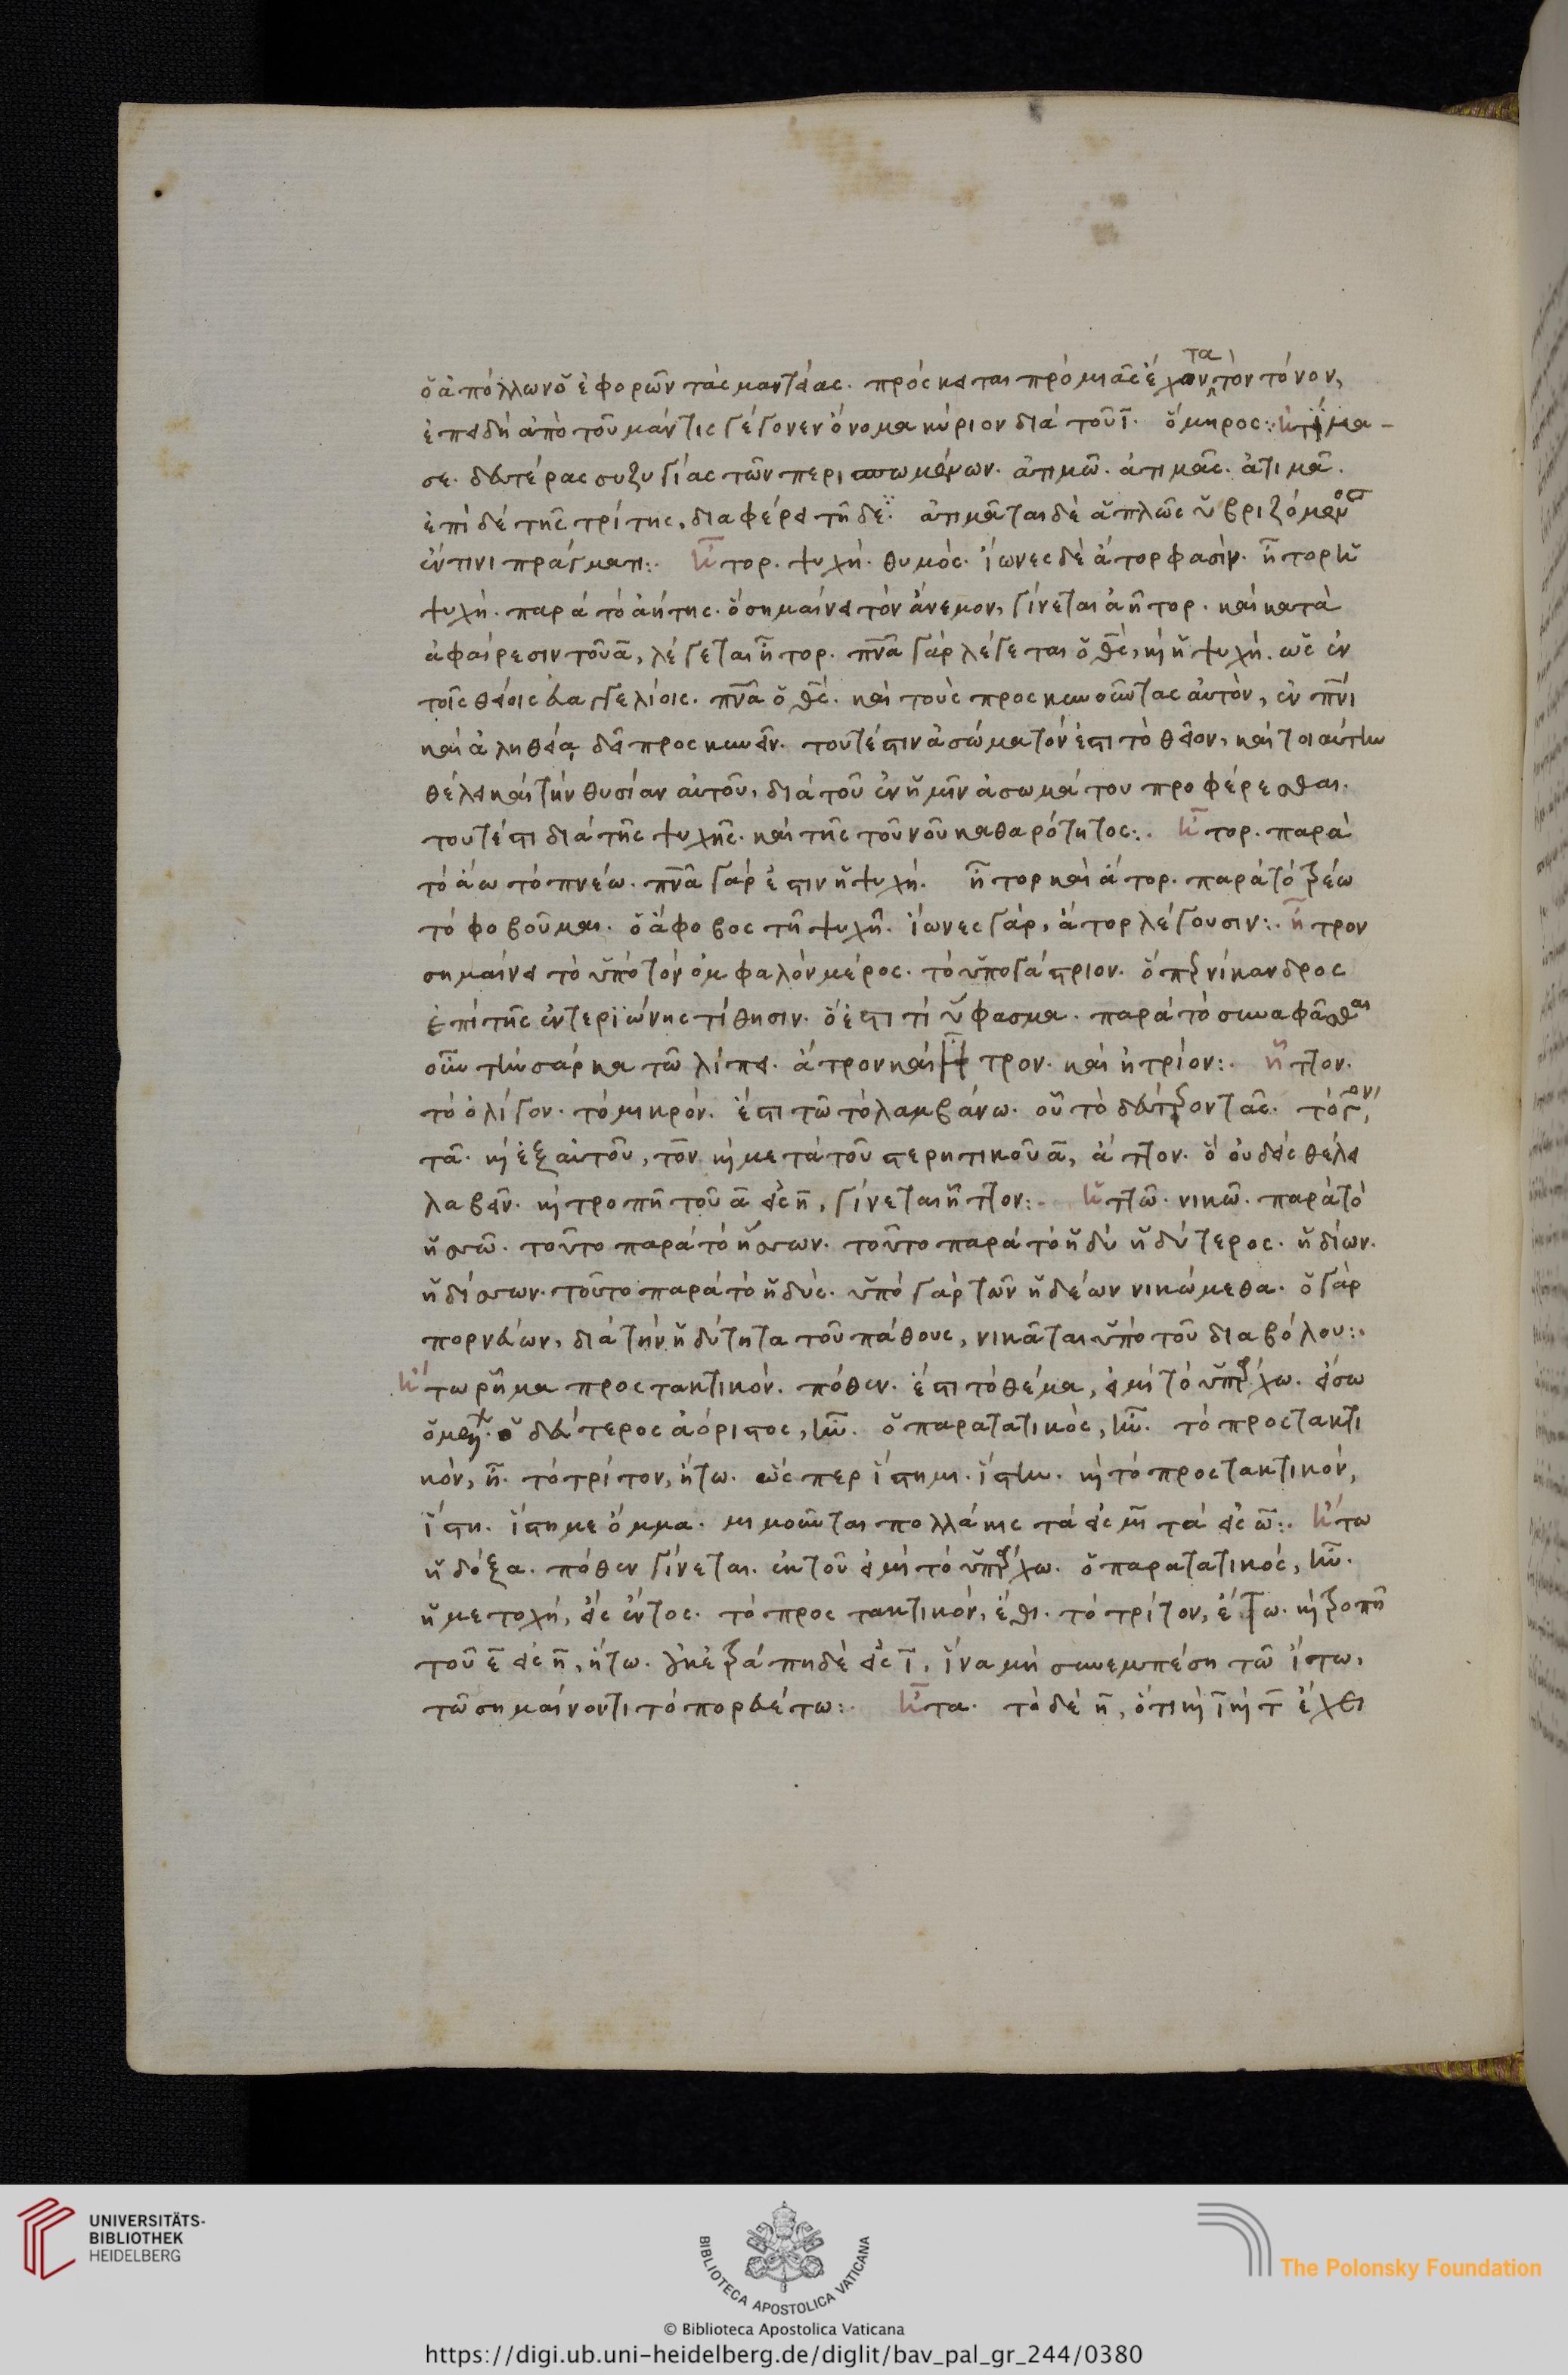 ὁ ἀπόλλων ὁ ἐφορῶν τὰς μαντείας. πρόσκειται πρὸ μιᾶς ἔχοντα τὸν τόνον,
ἐπειδὴ ἀπὸ τοῦ μάντις γέγονεν ὄνομα κύριον διὰ τοῦ ῑ. ὅμηρος: ἠτίμα-
σε. δευτέρας συζυγίας τῶν περισπωμένων. ἀτιμῶ. ἀτιμᾶς. ἀτιμᾶ.
ἐπὶ δὲ τῆς τρίτης, διαφέρει τῇ δε. ἀτιμᾶται δὲ ἁπλῶς ὑβριζόμενος
ἔν τινι πράγματι:. ἦτορ. ψυχή. θυμός. ἴωνες δὲ ἄτορ φασίν. ἦτορ ἡ
ψυχή. παρὰ τὸ ἀήτης. ὃ σημαίνει τὸν ἄνεμον, γίνεται ἀῆτορ. καὶ κατὰ
ἀφαίρεσιν τοῦ ᾱ, λέγεται ἦτορ. πν̅α γὰρ λέγεται ὁ θς̅, κὴ ἡ ψυχή. ὡς ἐν
τοῖς θείοις εὐαγγελίοις. πν̅α ὁ θς̅. καὶ τοὺς προσκυνοῦντας αὐτὸν, ἐν πν̅ι
καὶ ἀληθείᾳ δεῖ προσκυνεῖν. τουτέστιν ἀσώματόν ἐστι τὸ θεῖον, καὶ τοιαύτην
θέλει καὶ τὴν θυσίαν αὐτοῦ, διὰ τοῦ ἐν ἡμῖν ἀσωμάτου προφέρεσθαι.
τουτέστι διὰ τῆς ψυχῆς. καὶ τῆς τοῦ νοῦ καθαρότητος:. ἦτορ. παρὰ
τὸ ἄω τὸ πνέω. πν̅α γάρ ἐστιν ἡ ψυχή. ἦτορ καὶ ἄτορ. παρὰ τὸ τρέω
τὸ φοβοῦμαι. ὁ ἄφοβος τῇ ψυχῇ. ἴωνες γὰρ, ἄτορ λέγουσιν:. ἦτρον
σημαίνει τὸ ὑπὸ τὸν ὀμφαλὸν μέρος. τὸ ὑπογάστριον. ὅπερ νίκανδρος
ἐπὶ τῆς ἐντεριώνης τίθησιν. ὅ ἐστι τί ὕφασμα. παρὰ τὸ συναφᾶσθαι
τὴν σάρκα τῶ λίπει. ἄτρον καὶ τρον. καὶ ἠτρίον:. ἧττον.
τὸ ὀλίγον. τὸ μικρόν. ἔστι τῶ τὸ λαμβάνω. οὗ τὸ δεύτερον τᾶς. τὸ τρίτον,
τᾶ. κὴ ἐξ αὐτοῦ, τὸν κὴ μετὰ τοῦ στερητικοῦ ᾱ, ἄττον. ὃ οὐδεὶς θέλει
λαβεῖν. κὴ τροπῇ τοῦ ᾱ εἰς η̅, γίνεται ἧττον:. ἡττῶ. νικῶ. παρὰ τὸ
ἡσσῶ. τοῦτο παρὰ τὸ ἥσσων. τοῦτο παρὰ τὸ ἡδὺ ἡδύτερος. ἡδίων.
ἡδίσσων. τοῦτο παρὰ τὸ ἡδύς. ὑπὸ γὰρ τῶν ἡδέων νικώμεθα. ὁ γὰρ
πορνεύων, διὰ τὴν ἡδύτητα τοῦ πάθους, νικᾶται ὑπὸ τοῦ διαβόλου:.
ἤτω ῥῆμα προστακτικόν. πόθεν. ἔστι τὸ θέμα, εἰμὶ τὸ ὑπάρχω. εἴσω
ὁ μέλλων. ὁ δεύτερος ἀόριστος, ἦν. ὁ παρατατικὸς, ἦν. τὸ προστακτι
κόν, ἦ. τὸ τρίτον, ἤτω. ὥσπερ ἵστημι. ἵστην. κὴ τὸ προστακτικόν,
ἵστη. ἵστη με ὄμμα. μιμοῦνται πολλάκις τὰ εἰς μι τὰ εἰς ω̅:. ἤτω
ἡ δόξα. πόθεν γίνεται. ἐκ τοῦ εἰμὶ τὸ ὑπάρχω. ὁ παρατατικός, ἦν.
ἡ μετοχή, εἲς ἕντος. τὸ προστακτικόν, ἔθι. τὸ τρίτον, ἔτω. κὴ τροπῇ
τοῦ ε̅ εἰς η̅, ἤτω. οὐκ ἐτράπη δὲ εἰς ῑ, ἵνα μὴ συνεμπέση τῶ ἴστω,
τῶ σημαίνοντι τὸ πορευέτω:. ἦτα. τὸ δὲ η̅, ὅτι κὴ ῑ κὴ τ̅ ἔχει
UNIVERSITÄTS-
BIBLIOTHEK
HEIDELBERG
BIBLIOTECA APOSTOLICA VATICANA
The Polonsky Foundation
© Biblioteca Apostolica Vaticana
https://digi.ub.uni-heidelberg.de/diglit/bav_pal_gr_244/0380